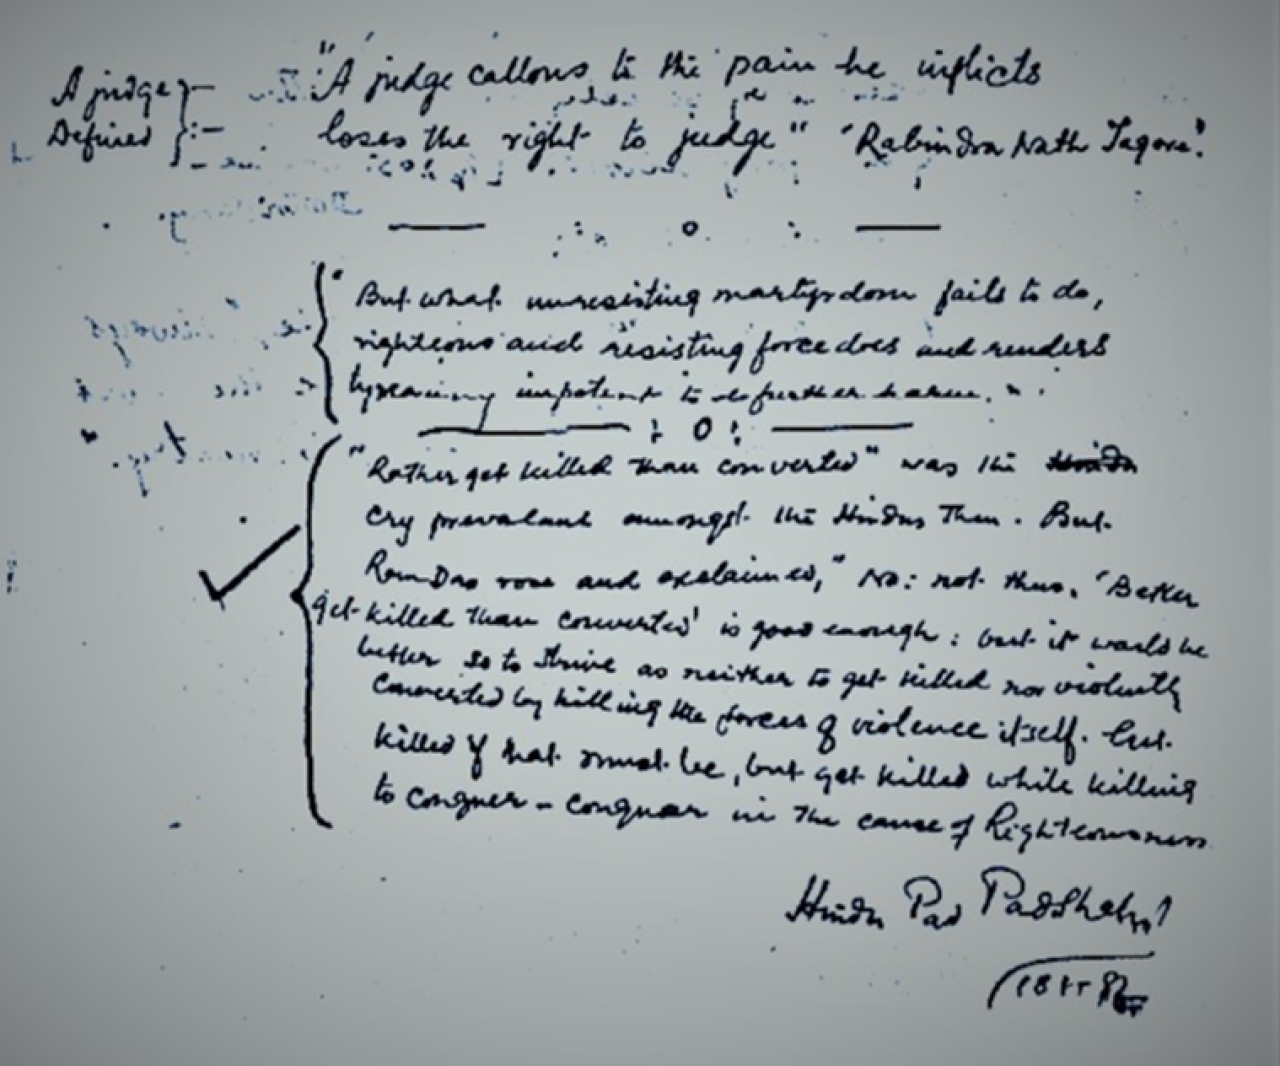 A judge :- "A judge callous to the pain he inflicts
Defined :- loses the right to judge" 'Rabindra Nath Tagore'.
— : o : —
"But what unresisting martyrdom fails to do,
righteous and resisting force does and renders
tyranny impotent to do further harm."
— : O : —
"Rather get killed than converted" was the Hindu
cry prevalant amongst the Hindus Then. But
Ram Das rose and exclaimed, "No: not thus. 'Better
get killed than converted' is good enough : but it would be
better so to strive as neither to get killed nor violently
converted by killing the forces of violence itself. Get
killed if that must be, but get killed while killing
to conquer - conquer in the cause of Righteousness
Hindu Pad Padshahi